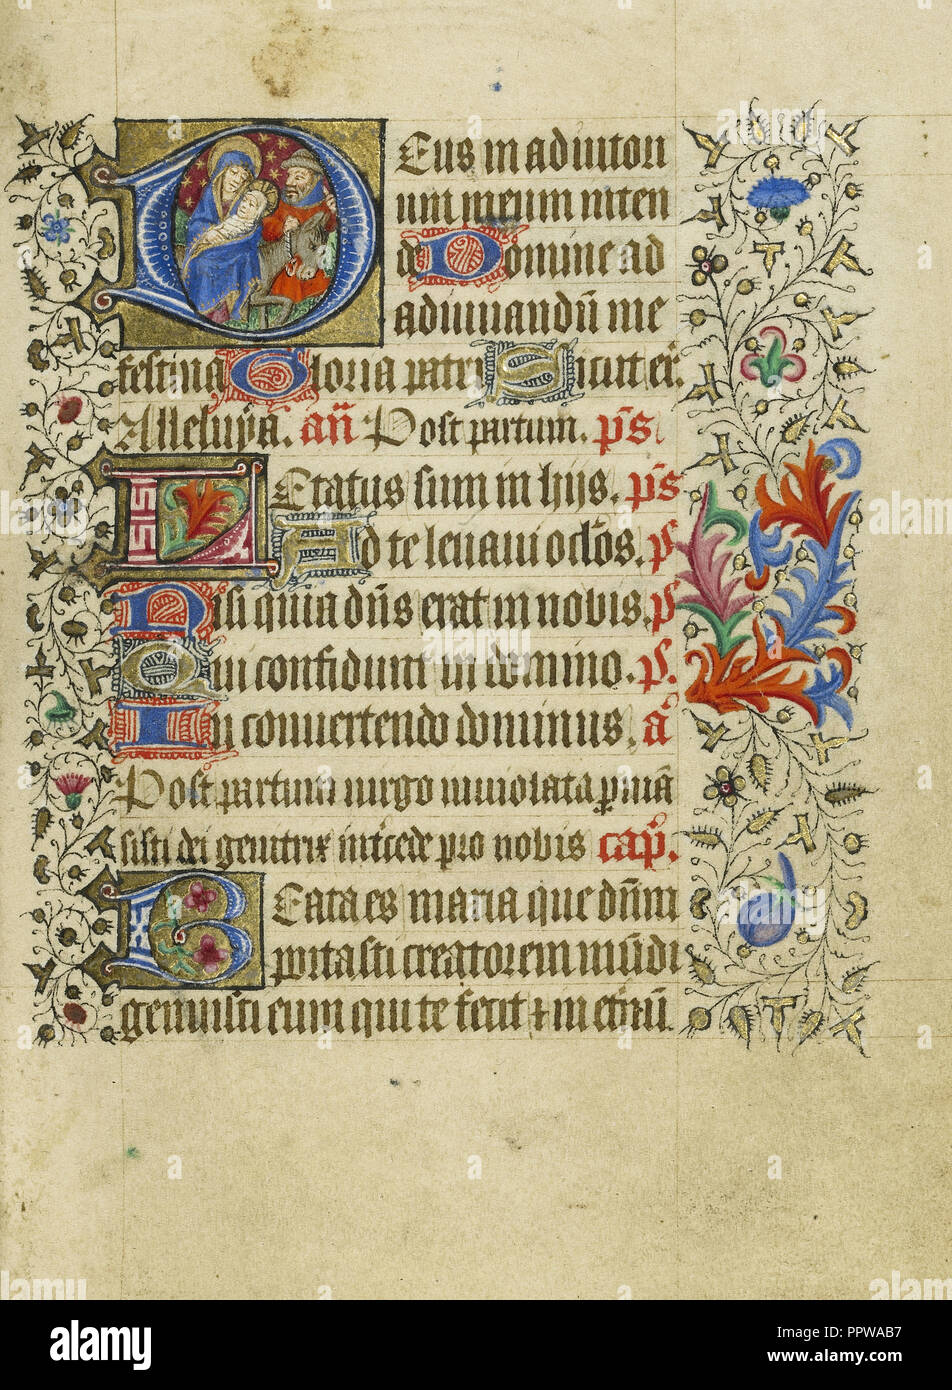 Deus in adiutori
um meum inten
de Domine ad
adiuuandū me
festina Gloria patri Sicut er̄.
Alleluya. añ Post partum. p̄s
Letatus sum in hijs. p̄s
Ad te leuaui oc̄los. p̄
Nisi quia dūs erat in nobis. p̄
Qui confidunt in domino. p̄.
In conuertendo dominus. a̅
Post partum uirgo inuiolata ꝑmā
sisti dei genitrix int̄cede pro nobis cap̄.
Beata es maria que dūm
portasti creatorem mūdi
genuisti eum qui te fecit ⁊ in et̄nū.
alamy
Image ID: PPWAB7
www.alamy.com